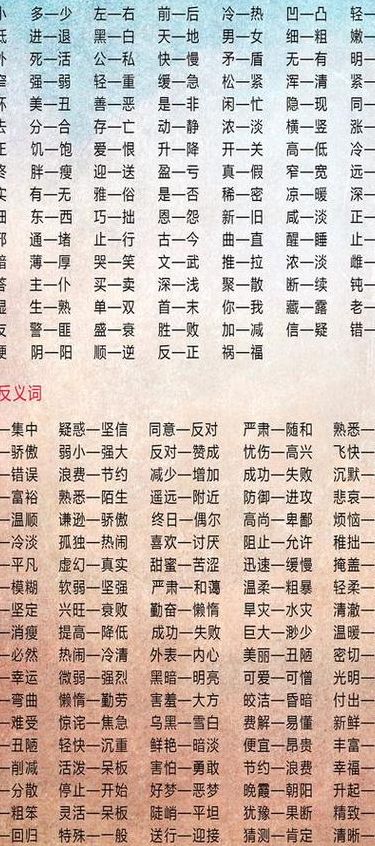 多—少 左—右 前—后 冷—热 凹—凸 轻—
进—退 黑—白 天—地 男—女 细—粗 嫩—
死—活 公—私 快—慢 矛—盾 无—有 明—
强—弱 轻—重 缓—急 松—紧 浑—清 紧—
美—丑 善—恶 是—非 闲—忙 隐—现 同—
分—合 存—亡 动—静 浓—淡 横—竖 涨—
饥—饱 爱—恨 升—降 开—关 高—低 冷—
胖—瘦 迎—送 盈—亏 真—假 窄—宽 远—
有—无 雅—俗 是—否 稀—密 凉—暖 深—
东—西 巧—拙 恩—怨 新—旧 咸—淡 正—
通—堵 止—行 古—今 曲—直 醒—睡 止—
薄—厚 哭—笑 文—武 推—拉 浓—淡 雌—
主—仆 买—卖 深—浅 聚—散 断—续 钝—
生—熟 单—双 首—末 你—我 藏—露 老—
警—匪 盛—衰 胜—败 加—减 信—疑 错—
阴—阳 顺—逆 反—正 祸—福
反义词
—集中 疑惑—坚信 同意—反对 严肃—随和 熟悉—
—骄傲 弱小—强大 反对—赞成 忧伤—高兴 飞快—
—错误 浪费—节约 减少—增加 成功—失败 沉默—
—富裕 熟悉—陌生 遥远—附近 防御—进攻 悲哀—
—温顺 谦逊—骄傲 终日—偶尔 高尚—卑鄙 烦恼—
—冷淡 孤独—热闹 喜欢—讨厌 阻止—允许 稚拙—
—平凡 虚幻—真实 甜蜜—苦涩 迅速—缓慢 掩盖—
—模糊 软弱—坚强 严肃—和蔼 温柔—粗暴 轻柔—
—坚定 兴旺—衰败 勤奋—懒惰 旱灾—水灾 清澈—
—消瘦 提高—降低 成功—失败 巨大—渺少 温暖—
—必然 热闹—冷清 外表—内心 美丽—丑陋 密切—
—幸运 微弱—强烈 黑暗—明亮 可爱—可憎 光明—
—弯曲 懒惰—勤劳 害羞—大方 皎洁—昏暗 付出—
—难受 惊诧—焦急 乌黑—雪白 费解—易懂 新鲜—
—丑陋 轻快—沉重 鲜艳—暗淡 便宜—昂贵 丰富—
—削减 活泼—呆板 害怕—勇敢 节约—浪费 幸福—
—分散 停止—开始 好梦—恶梦 晚霞—朝阳 升起—
—粗笨 灵活—呆板 陡峭—平坦 犹豫—果断 精致—
—回归 特殊—一般 送行—迎接 猜测—肯定 清晰—